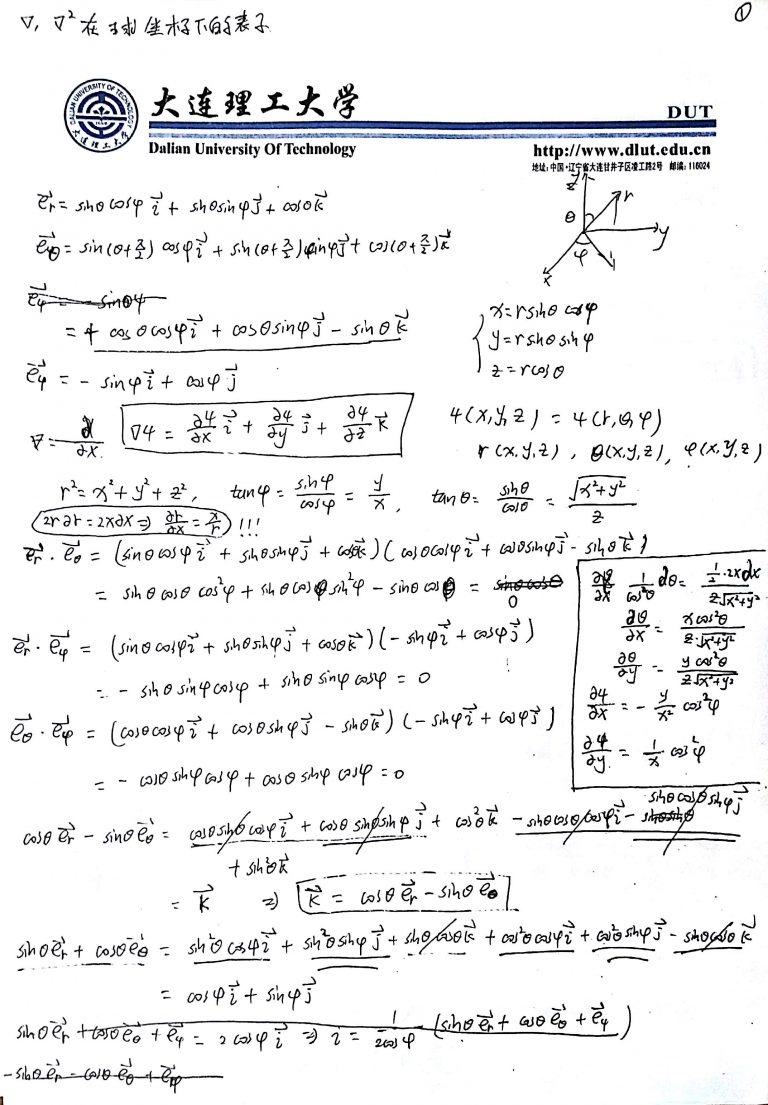 ∇, ∇² 在球坐标下的表示
①
大连理工大学
DUT
DALIAN UNIVERSITY OF TECHNOLOGY
大连理工大学
Dalian University Of Technology
http://www.dlut.edu.cn
地址: 中国·辽宁省大连甘井子区凌工路2号 邮编: 116024
e⃗r = sinθcosφ i⃗ + sinθsinφ j⃗ + cosθ k⃗
e⃗θ = sin(θ+π/2) cosφ i⃗ + sin(θ+π/2) sinφ j⃗ + cos(θ+π/2) k⃗
z r θ y φ x
e⃗φ = sinθφ
= cosθcosφ i⃗ + cosθsinφ j⃗ - sinθ k⃗
e⃗φ = - sinφ i⃗ + cosφ j⃗
x = r sinθ cosφ
y = r sinθ sinφ
z = r cosθ
∇ = ∂/∂x
∇ψ = ∂ψ/∂x i⃗ + ∂ψ/∂y j⃗ + ∂ψ/∂z k⃗
ψ(x,y,z) = ψ(r,θ,φ)
r(x,y,z), θ(x,y,z), φ(x,y,z)
r² = x² + y² + z², tanφ = sinφ/cosφ = y/x, tanθ = sinθ/cosθ = √(x²+y²)/z
2r∂r = 2x∂x ⇒ ∂r/∂x = x/r !!!
e⃗r · e⃗θ = (sinθcosφ i⃗ + sinθsinφ j⃗ + cosθk⃗)(cosθcosφ i⃗ + cosθsinφ j⃗ - sinθ k⃗)
= sinθcosθ cos²φ + sinθcosθ sin²φ - sinθcosθ = sinθcosθ
0
e⃗r · e⃗φ = (sinθcosφ i⃗ + sinθsinφ j⃗ + cosθ k⃗)(-sinφ i⃗ + cosφ j⃗)
= - sinθ sinφcosφ + sinθ sinφ cosφ = 0
e⃗θ · e⃗φ = (cosθcosφ i⃗ + cosθsinφ j⃗ - sinθk⃗)(-sinφ i⃗ + cosφ j⃗)
= - cosθ sinφ cosφ + cosθ sinφ cosφ = 0
1/cos²θ dθ = ½·2xdx / z√(x²+y²)
∂θ/∂x = xcos²θ / z·√(x²+y²)
∂θ/∂y = ycos²θ / z√(x²+y²)
∂φ/∂x = - y/x² cos²φ
∂φ/∂y = 1/x cos²φ
cosθ e⃗r - sinθ e⃗θ = cosθsinθcosφ i⃗ + cosθ sinθsinφ j⃗ + cos²θ k⃗ - sinθcosθcosφ i⃗ - sinθcosθsinφ j⃗
+ sin²θ k⃗
= k⃗ ⇒ k⃗ = cosθ e⃗r - sinθ e⃗θ
sinθ e⃗r + cosθ e⃗θ = sin²θcosφ i⃗ + sin²θsinφ j⃗ + sinθcosθ k⃗ + cos²θcosφ i⃗ + cos²θsinφ j⃗ - sinθcosθ k⃗
= cosφ i⃗ + sinφ j⃗
sinθ e⃗r + cosθ e⃗θ + e⃗φ = 2cosφ i⃗ ⇒ i = 1/2cosφ (sinθ e⃗r + cosθ e⃗θ + e⃗φ)
- sinθ e⃗r - cosθ e⃗θ + e⃗φ